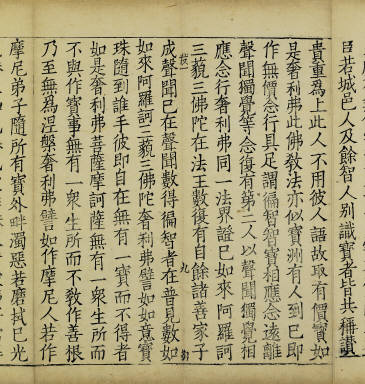 若城邑人及餘智人別識寶者皆共稱讚
貴重為上此人不用彼人語故取有價寶如
是奢利弗此佛敎法亦似寶洲有人到已即
作無價念行具足謂徧智智寶相應念遠離
聲聞獨覺等念復有第二人以聲聞獨覺相
應念行奢利弗同一法界證已如來阿羅訶
三藐三佛陀在法王數復有自餘諸善家子
九
成聲聞已在聲聞數得徧智者在普見數如
如來阿羅訶三藐三佛陀奢利弗譬如如意寶
珠隨到誰手彼即自在無有一寶而不得者
如是奢利弗菩薩摩訶薩無有一衆生所而
不與作寶事無有一衆生所而不敎作善根
乃至無為涅槃奢利弗譬如作摩尼人若作
摩尼弟子隨所有寶外畔濁惡若磨拭已光